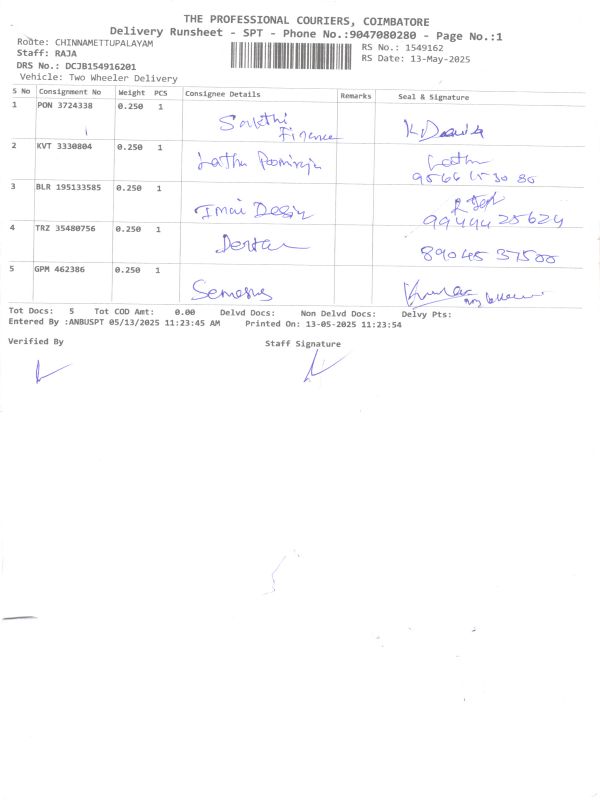 THE PROFESSIONAL COURIERS, COIMBATORE
Delivery Runsheet - SPT - Phone No.:9047080280 - Page No.:1
Route: CHINNAMETTUPALAYAM
RS No.: 1549162
Staff: RAJA
RS Date: 13-May-2025
DRS No.: DCJB154916201
Vehicle: Two Wheeler Delivery
S No Consignment No Weight PCS Consignee Details Remarks Seal & Signature
1 PON 3724338 0.250 1
Sakthi
Finance
2 KVT 3330804 0.250 1
Latha
Latha
95661 53080
3 BLR 195133585 0.250 1
Imai Design
99444 25624
4 TRZ 35480756 0.250 1
89045 37500
5 GPM 462386 0.250 1
Tot Docs: 5 Tot COD Amt: 0.00 Delvd Docs: Non Delvd Docs: Delvy Pts:
Entered By :ANBUSPT 05/13/2025 11:23:45 AM Printed On: 13-05-2025 11:23:54
Verified By Staff Signature